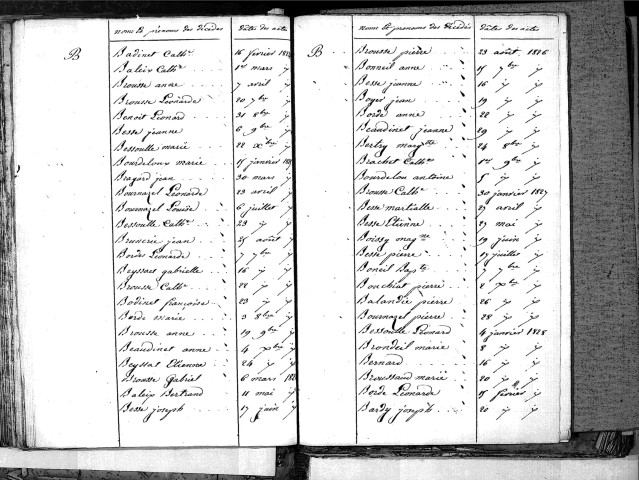 noms & prénoms des décédés dates des actes
B Badinet Cath.e 16 février
Baleix Cath.e 1er mars
Brousse anne 7 avril
Brousse Léonarde 20 7bre
Benoit Léonard 31 8bre
Besse jeanne 6 9bre
Bessoulle marie 22 Xbre
Bourdeloux marie 15 janvier
Bragard jean 30 mars
Bournazel Léonarde 23 avril
Bournazel Louise 6 juillet
Bessoulle Cath.e 23
Brunerie jean 25 août
Borde Léonarde 7 7bre
Beyssat gabrielle 16
Brousse Cath.e 22
Bodinet françoise 23
Borde marie 3 8bre
Brousse anne 19 9bre
Beaudinet anne 4 Xbre
Beyssat Etienne 24
Brousse Gabriel 6 mars
Baleix Bertrand 11 mai
Besse joseph 17 juin
noms & prénoms des décédés dates des actes
B Brousse pierre 23 août 1826
Bonneil anne 15 7bre
Besse jeanne 16
Boyer jean 19
Borde anne 22
Beaudinet jeanne 29
Bertry marg.tte 24 8bre
Brachet Cath.e 1er 9bre
Bourdelon antoine 5
Brousse Cath.e 30 janvier 1827
Besse martialle 27 avril
Besse Etienne 27 mai
Boissy mag.ne 19 juin
Besse pierre 17 juillet
Boneil Bap.te 7 7bre
Bouchiat pierre 2 Xbre
Balandie pierre 26
Bournazel pierre 28
Bessoulle Léonard 4 janvier 1828
Brondeil marie 8
Bernard 16
Broussaud marie 20
Borde Léonarde 15 février
Bardy joseph 20